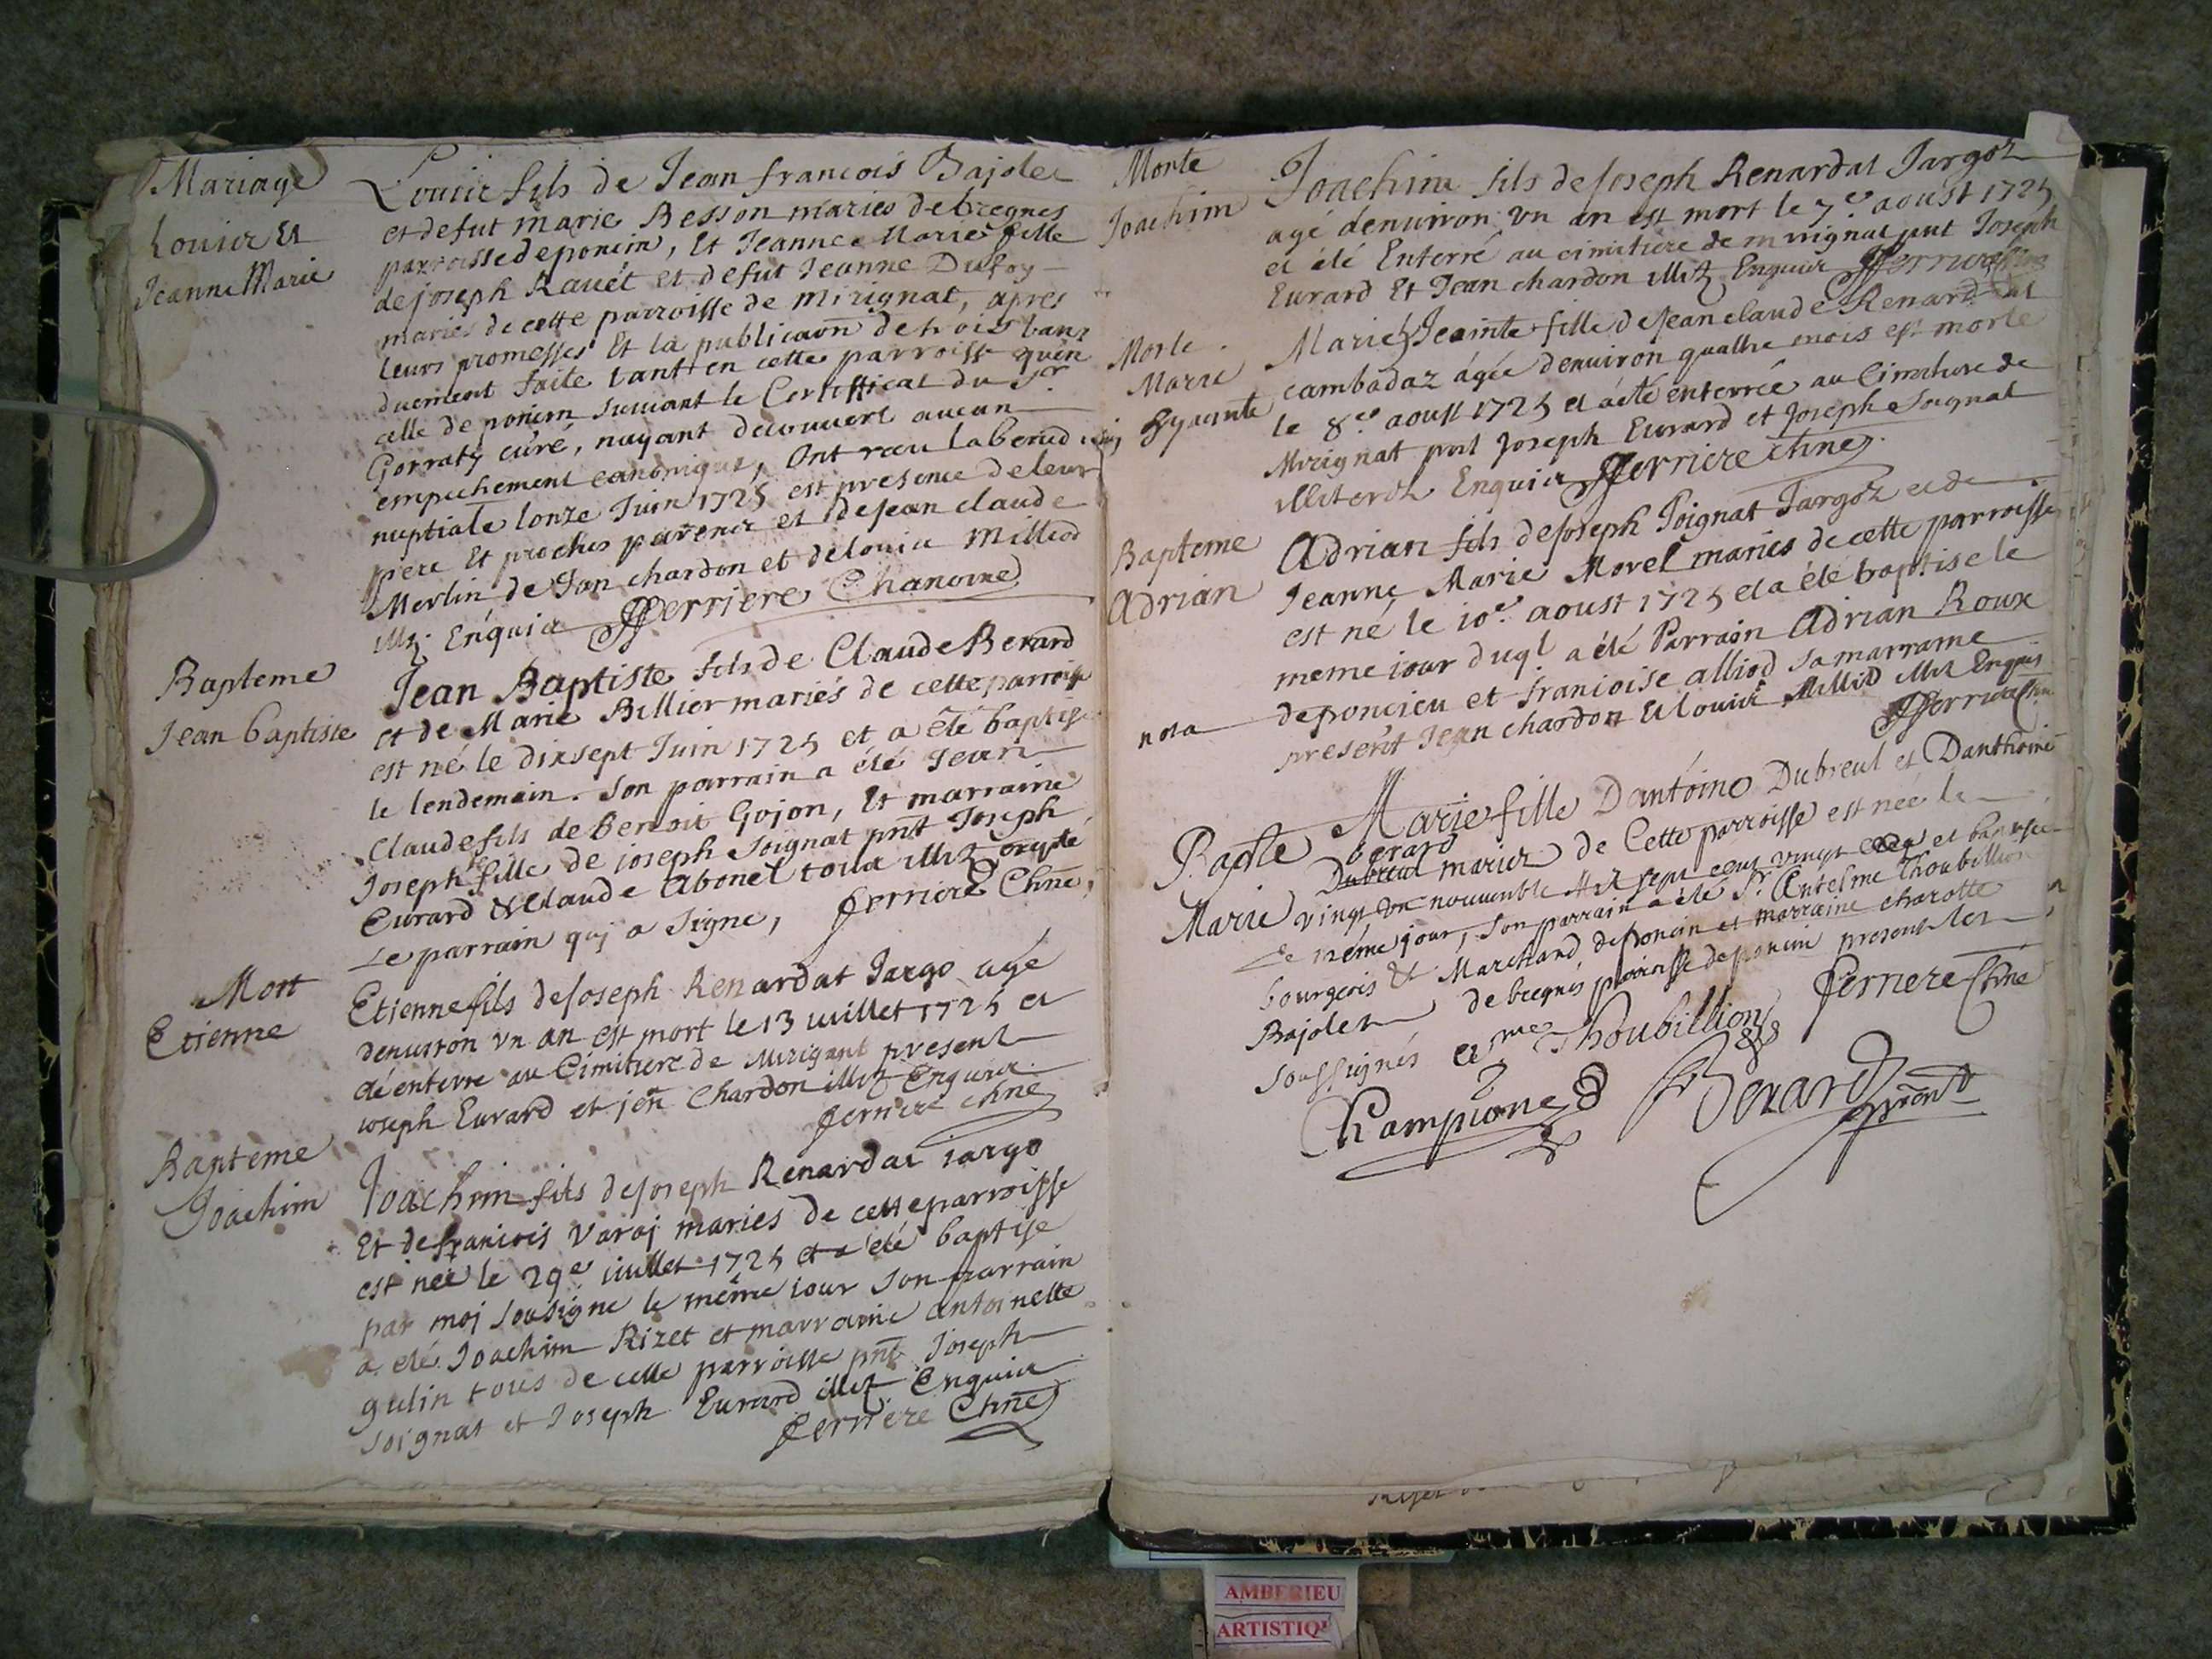 Mariage
Louiiz Et
Jeanne Marie
Louiiz fils de Jean francois Bajolet
et defut marie Besson mariés de bregnes
parroisse deponcin, Et Jeanne Marie fille
de joseph Rauét et defut Jeanne Dufoy
mariés de cette parroisse de mirignat, apres
leurs promesses Et la publicaon de trois bans
duement faite tant en cette parroisse quèn
celle de poncin suivant le Certifficat du Sr
Gorraty curé, nayant decouvert aucun
empechement canonique, Ont receu la bened
nuptiale lonze Juin 1725 est presence de leur
pere Et proches parents et de Jean claude
Merlin de Jan chardon et de louiic Milliod
illiz Enquis fferriere Chanoine
Bapteme
Jean baptiste
Jean Baptiste fils de Claude Berard
et de Marie Billier mariés de cette parroisse
est né le dixsept Juin 1725 et a été baptisé
le lendemain. son parrain a été Jean
Claude fils de benoit Gojon, Et marraine
Josephte fille de joseph Soignat pnt Joseph
Evrard & Claude Abonel tous illiz excepté
Le parrain quj a signe, fferriere Chne
Mort
Etienne
Etienne fils de Joseph Renardat Jargo agé
denuiron vn an est mort le 13 iuillet 1725 et
été enterre au Cimitiere de Mirignat present
ioseph Evrard et jen Chardon illiz Enquis
fferriere chne
Bapteme
Joachim
Joachim fils de Joseph Renardat iargo
Et de francois Varaj mariés de cette parroisse
est neé le 29e iuillet 1725 et a été baptise
par moj sousigne le même iour son parrain
a eté Joachim Rizet et marraine antoinette
gulin tous de cette parroisse pnt Joseph
Soignat et Joseph Evrard illiz Enquis
fferriere Chne
Morte
Joachim
Joachim fils de Joseph Renardat Jargoz
agé denuiron vn an est mort le 7e aoust 1725
et été Enterré au cimitiere de mirignat pnt Joseph
Evrard Et Jean chardon illiz Enquis fferriere Chne
Morte
Marie
hyacinte
Marie Jcainte fille de Jean claude Renardat
cambadaz agée denuiron quattre mois est morte
le 8e aoust 1725 et a été enterrée au Cimitiere de
Mirignat pnt Joseph Evrard et Joseph Soignat
illiterez Enquis fferriere Chne
Bapteme
Adrian
Adrian fils de Joseph Soignat Jargoz et de
Jeanne Marie Morel mariés de cette parroisse
est né le 10e aoust 1725 et a été baptise le
meme iour duql a été Parrain Adrian Roux
nota deponcieu et francoise alliod sa marraine
present Jean chardon et louiic Milliod illiz Enquis
fferriere Chne
Bapte
Marie
Marie fille Dantóine Dubreul et Danthoine
berard
Dubreul mariez de Cette parroisse est née le
vingt un nouuembre Mil sept cent vingt cinq et baptisée
Le même jour, son parrain a été Sr. Antelme Thoubillion
bourgeois & Marchand deponcin et marraine charotte
Bajolet de bregnes parroisse deponcin present les
soussignés Thoubillion fferriere Chne
Champione Berard
prent
AMBERIEU
ARTISTIQ